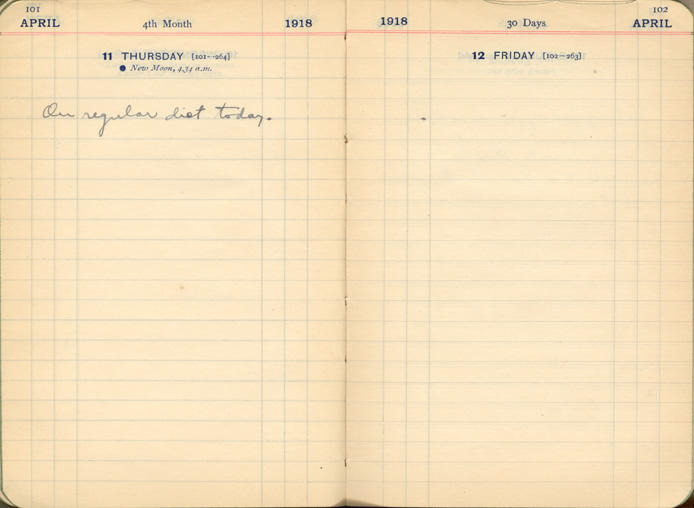 101
APRIL 4th Month 1918
11 THURSDAY [101-264]
● New Moon, 4.34 a.m.
On regular diet today.
102
1918 30 Days APRIL
12 FRIDAY [102-263]